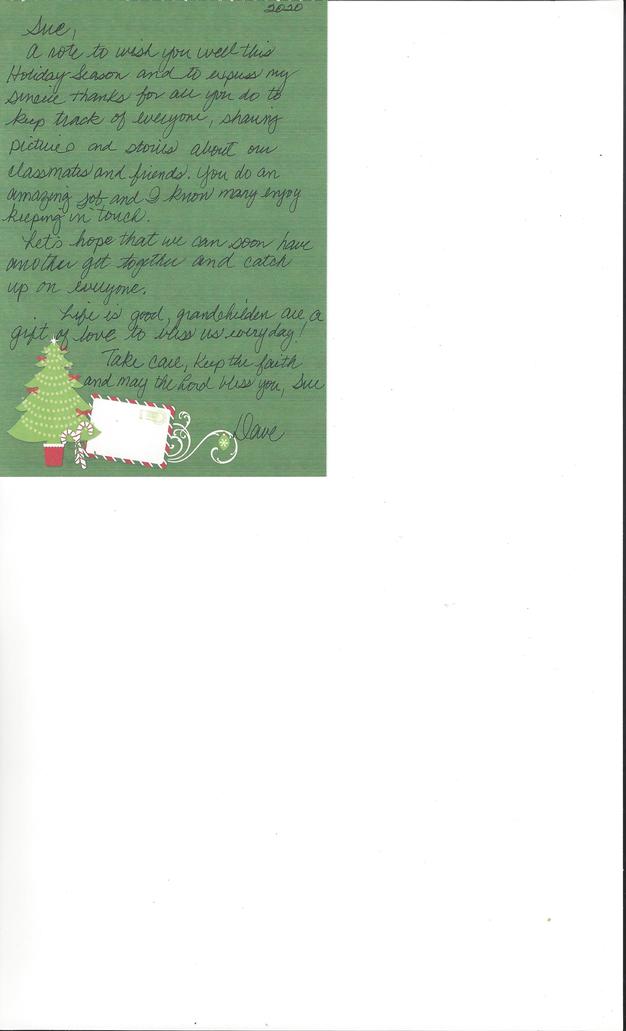 2020
Sue,
A note to wish you well this
Holiday Season and to express my
sincere thanks for all you do to
keep track of everyone, sharing
pictures and stories about our
classmates and friends. You do an
amazing job and I know many enjoy
keeping in touch.
Let's hope that we can soon have
another get together and catch
up on everyone.
Life is good, grandchilden are a
gift of love to bless us everyday!
Take care, Keep the faith
and may the Lord bless you, Sue
Dave